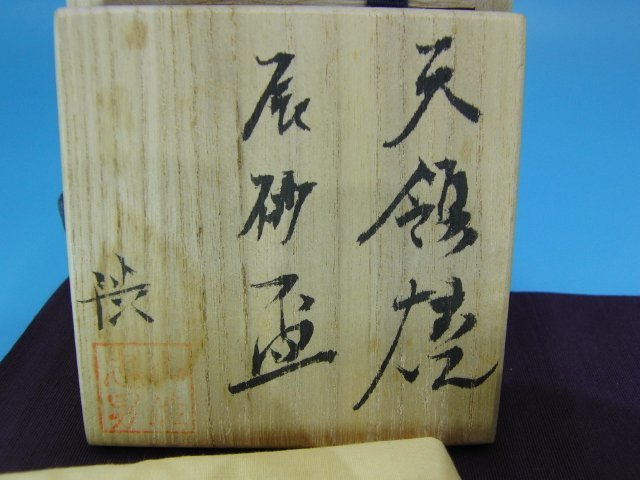 天領焼
辰砂盃
渓